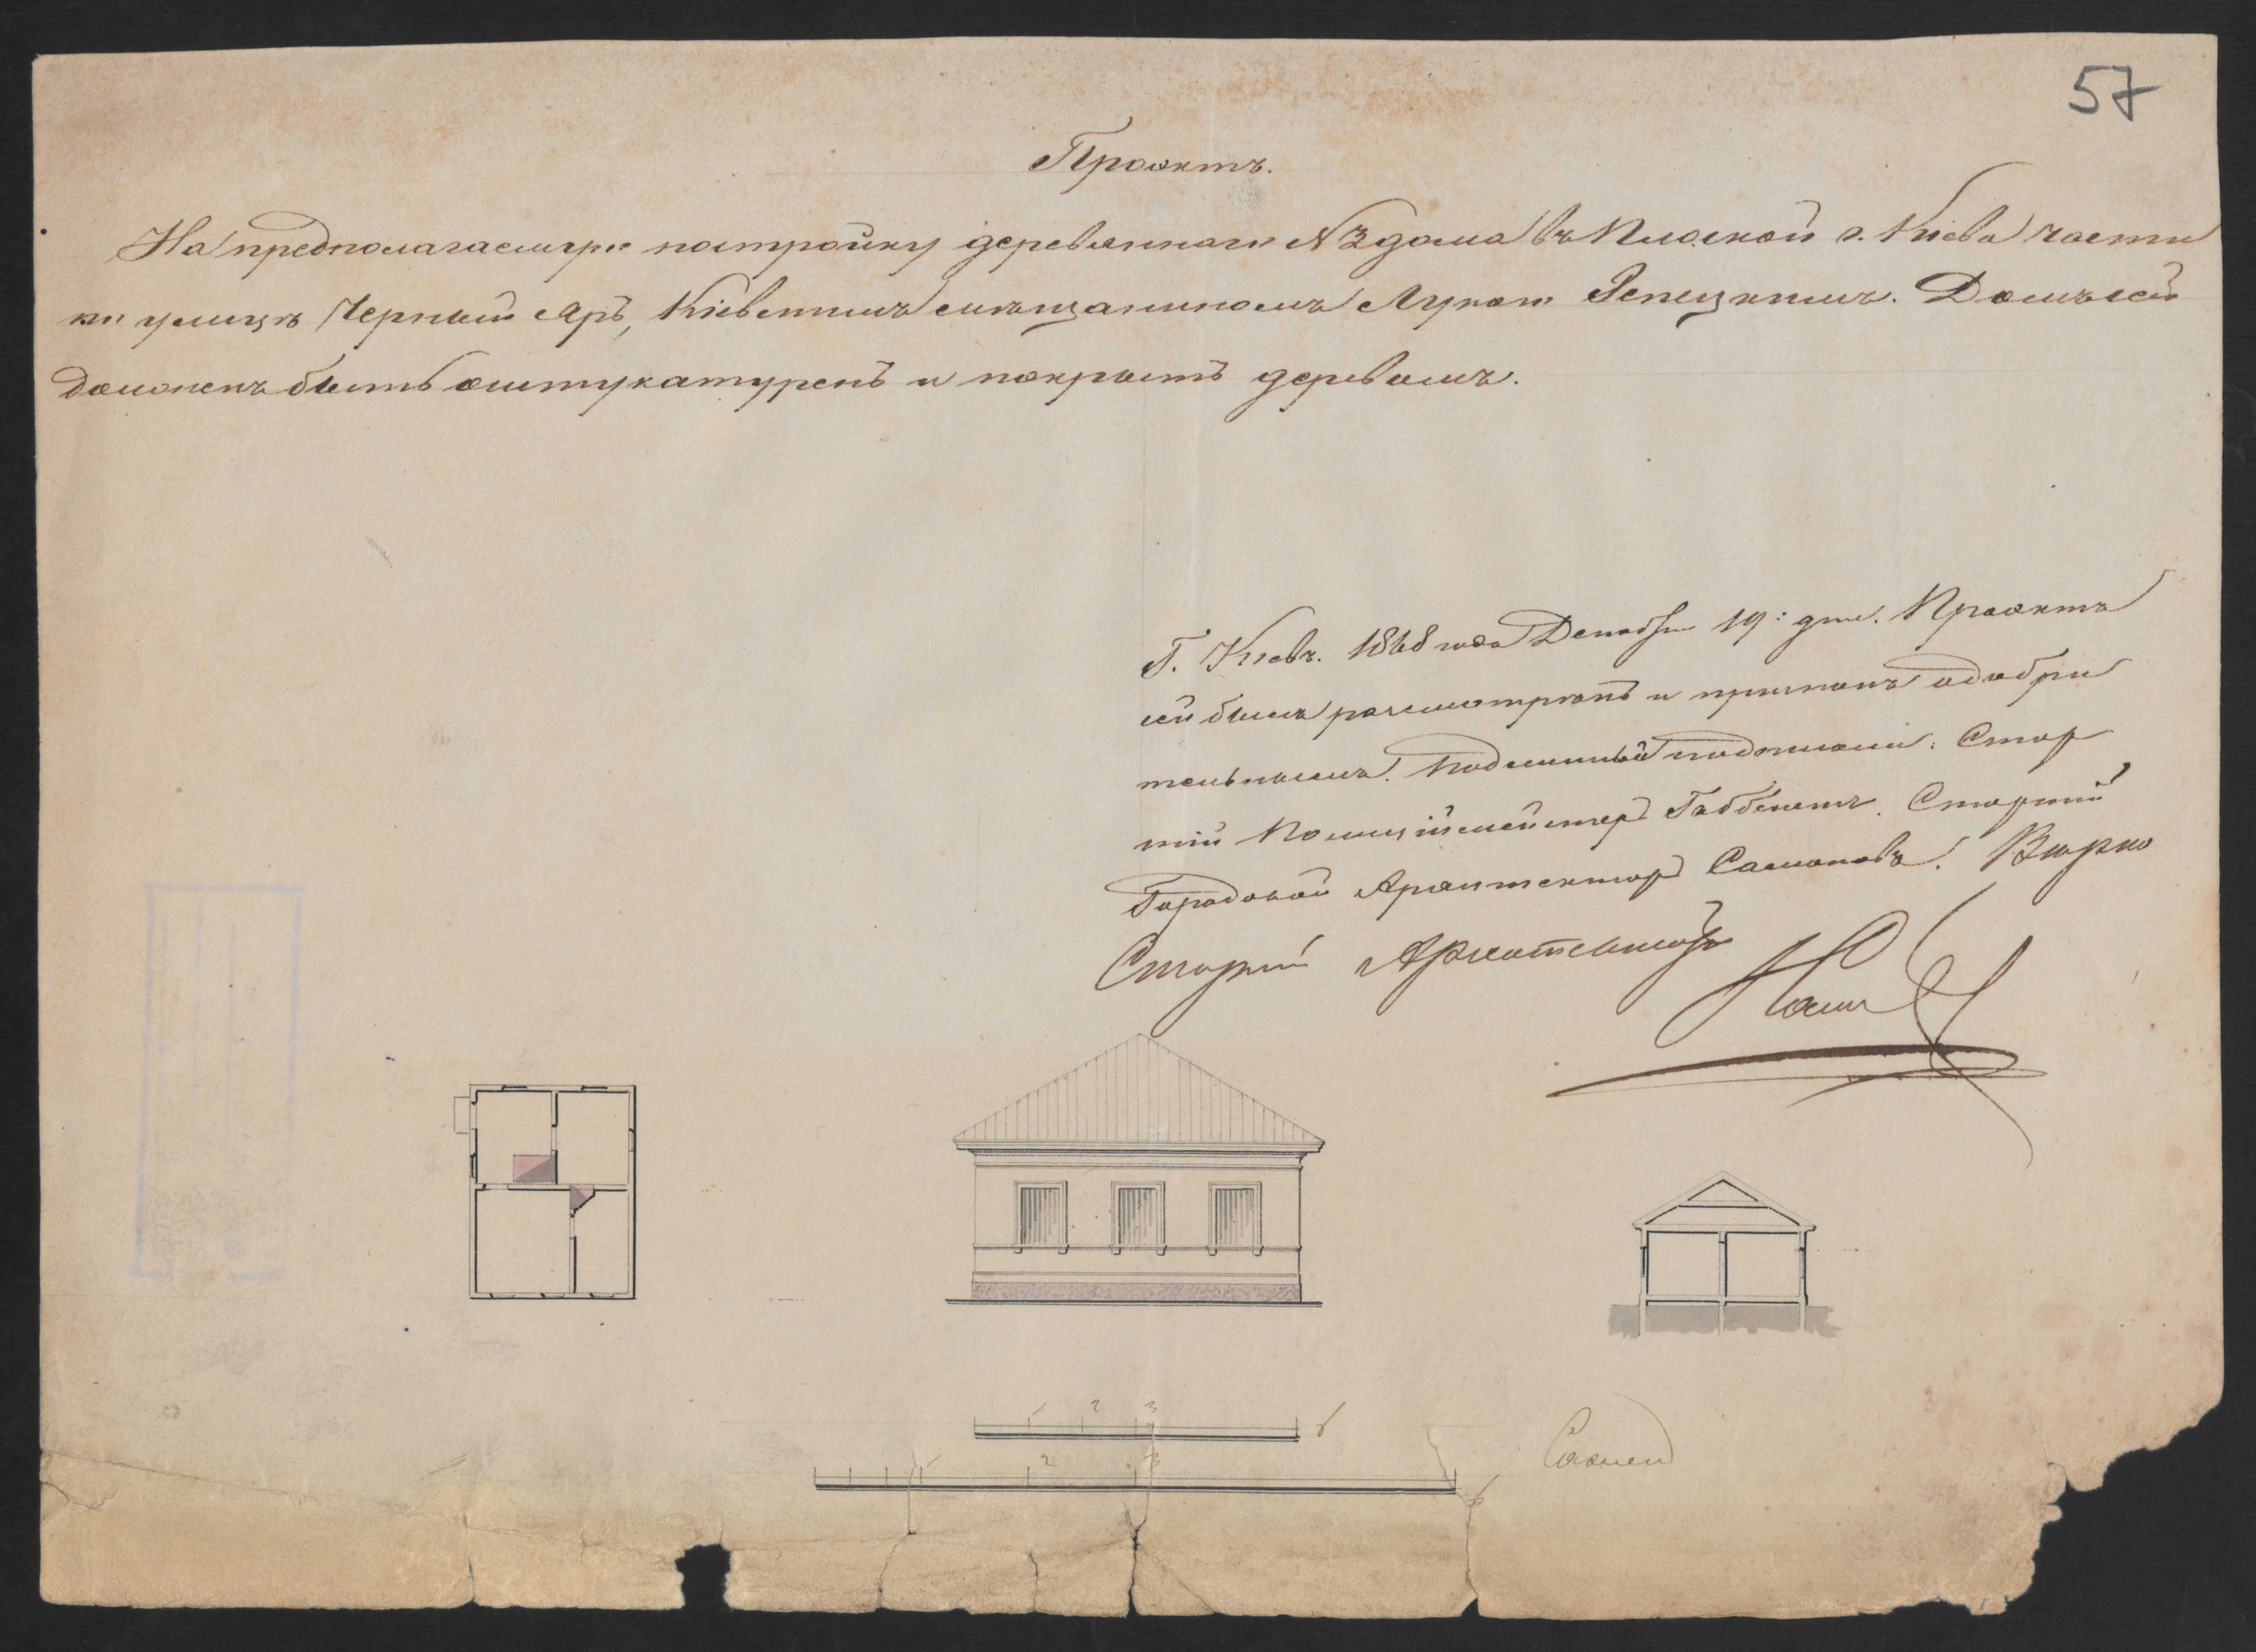 57
Проэктъ.
На предполагаемую постройку деревяннаго № 3 дома въ Плоской г. Кіева части
по улицѣ Черный Яръ, Кіевскимъ мѣщаниномъ Лукою Репецкимъ. Домъ сей
долженъ быть оштукатуренъ и покрытъ деревомъ.
Г. Кіевъ. 1868 года Декабря 19: дня. Проэктъ
сей былъ разсмотрѣнъ и признанъ одобри
тельнымъ. Подлинный подписали: Стар
шій Полиціймейстеръ Габбенетъ. Старшій
Городовой Архитекторъ Самоновъ. Вѣрно
Старшій Архитекторъ
1 2 3 6
1 2 3 6
Сажен